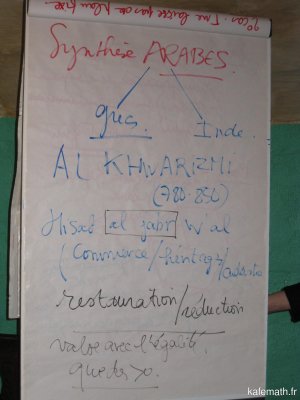 Synthèse ARABES.
grecs. Inde.
AL KHWARIZMI
(780-850)
Hisab al jabr w'al
(commerce/héritage/cadastre
restauration/réduction
valse avec l'égalité.
que des >0.
kafemath.fr